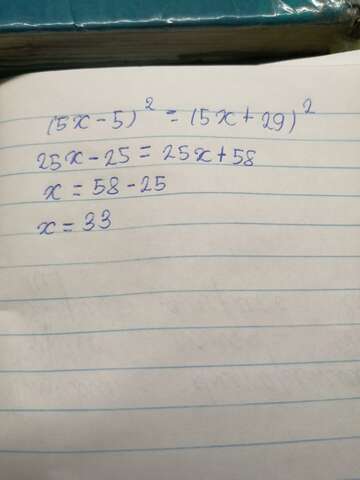 (5x-5)² = (5x+29)²
25x-25 = 25x+58
x = 58-25
x = 33